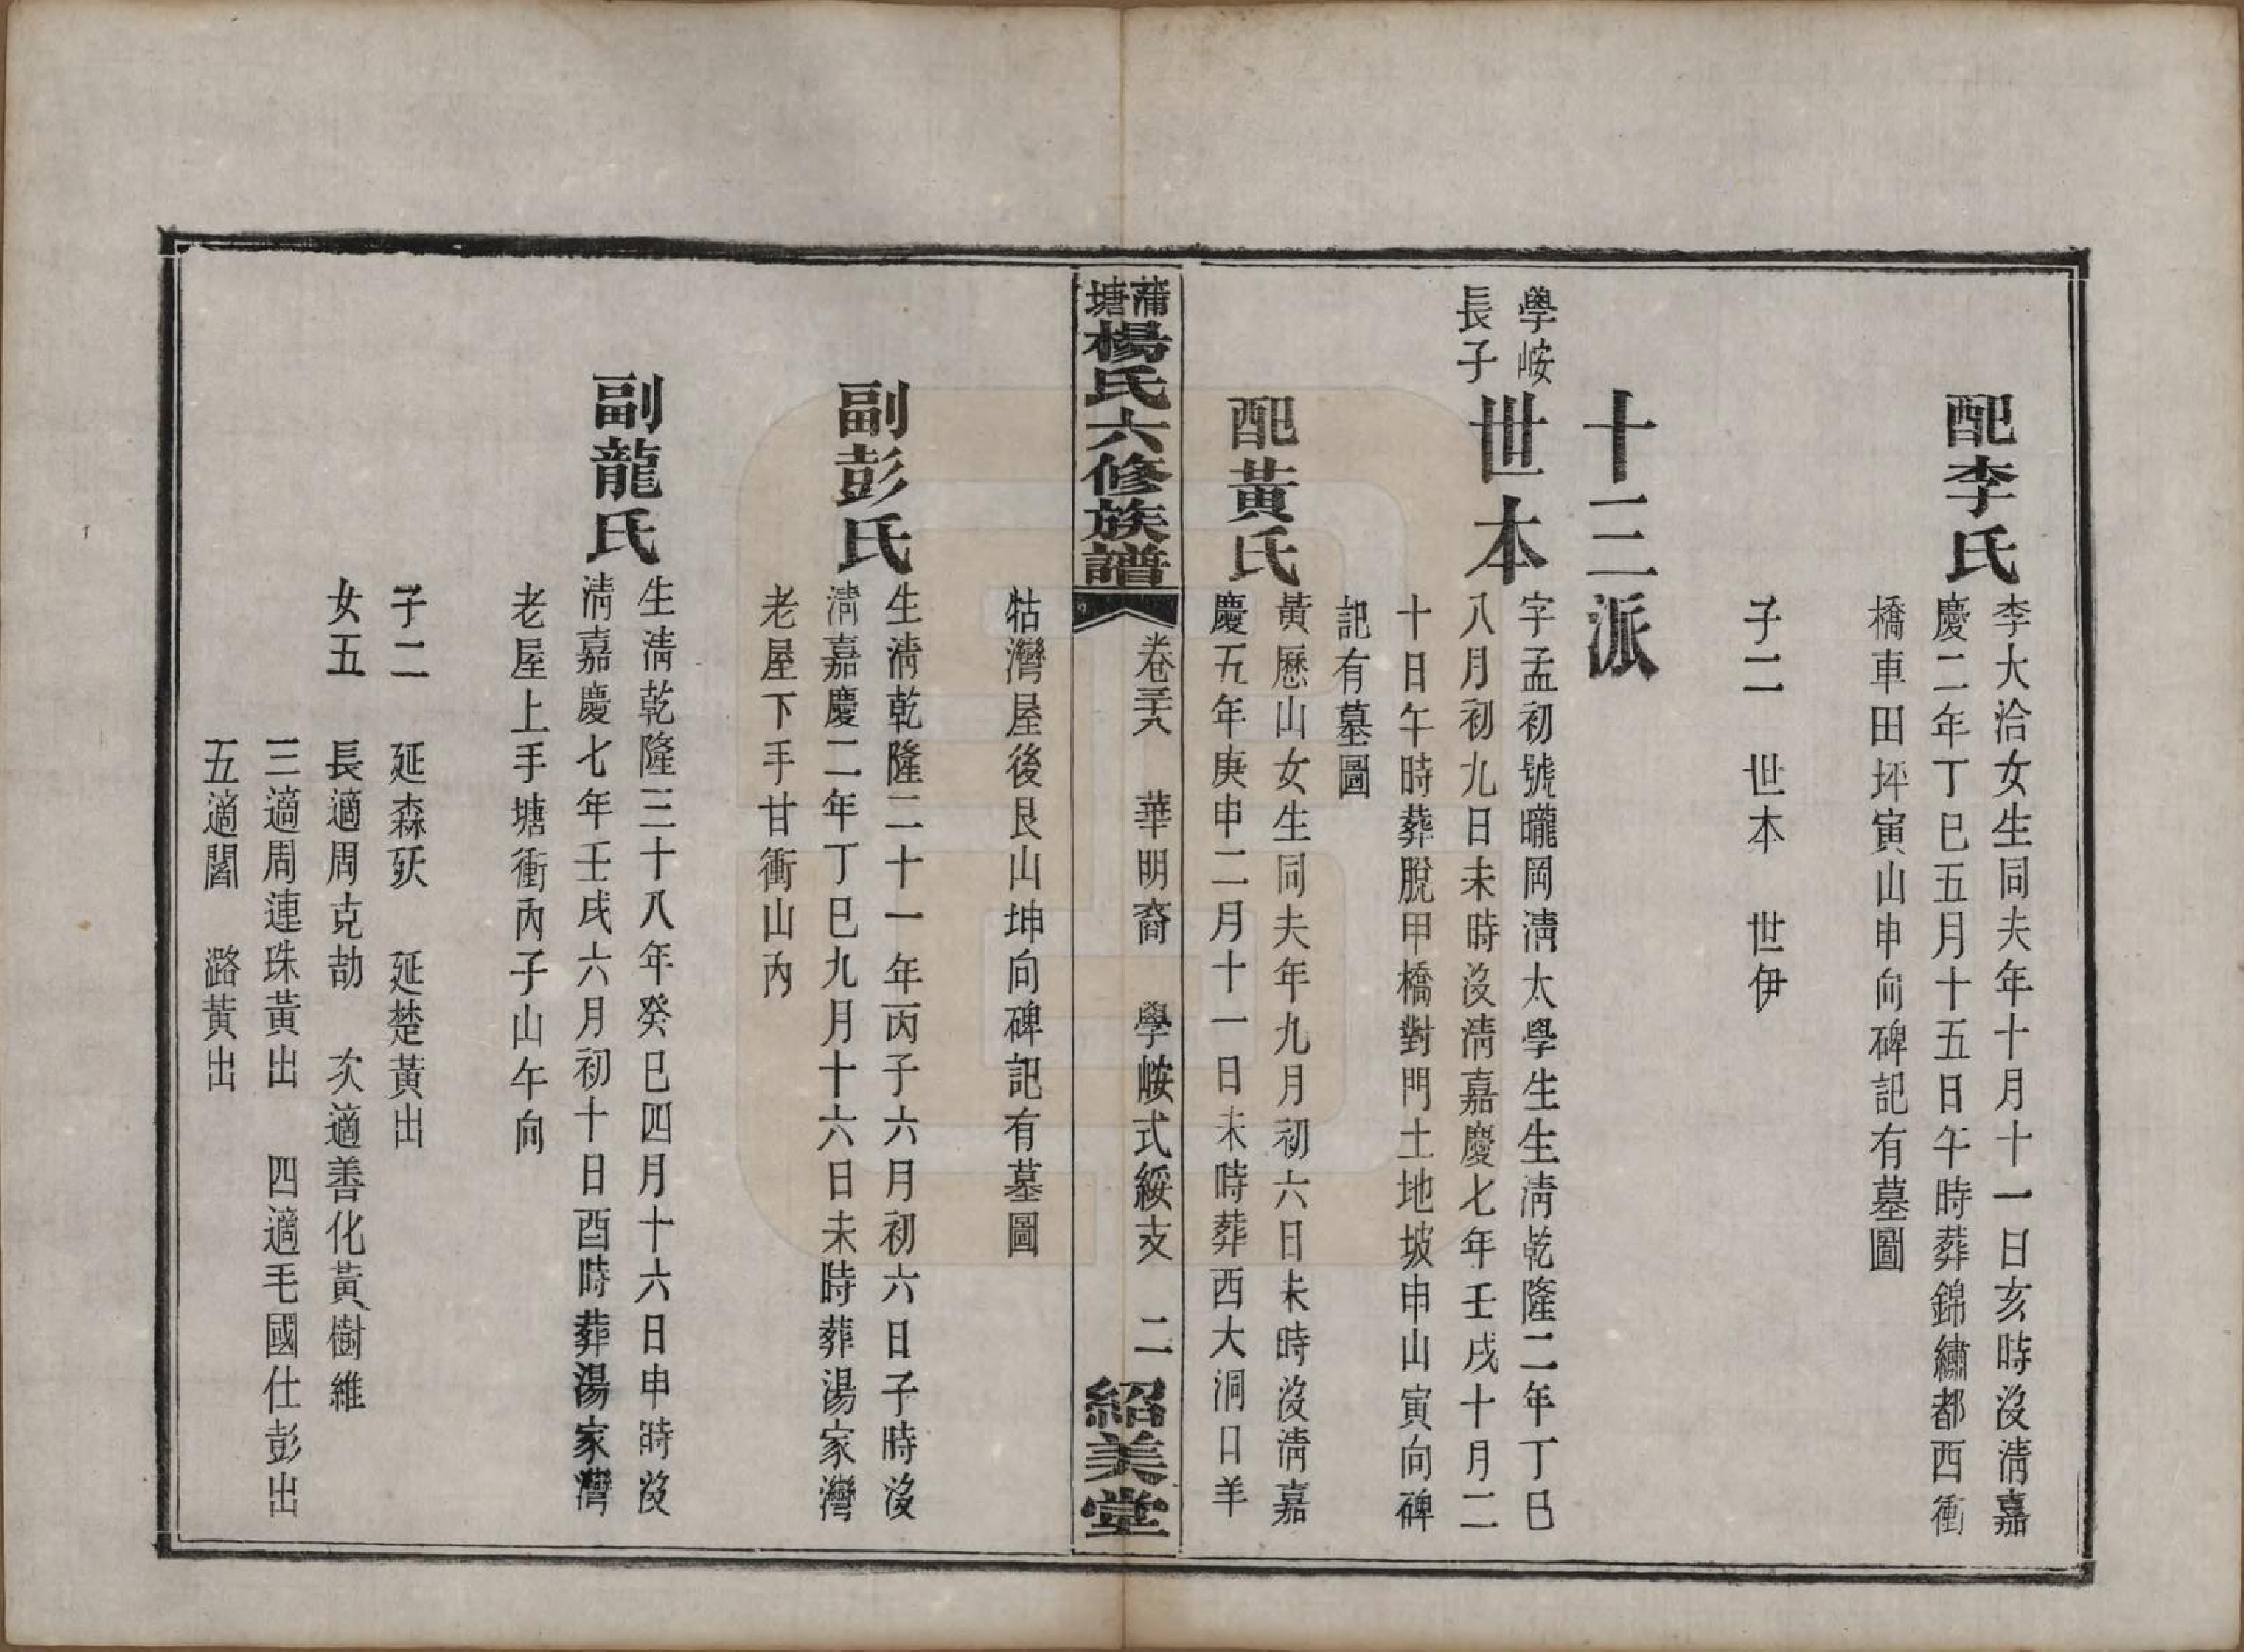 配李氏
李大洽女生同夫年十月十一日亥時沒清嘉
慶二年丁巳五月十五日午時葬錦繡都西衝
橋車田坪寅山申向碑記有墓圖
子二　世本　世伊
十三派
學峖
長子
世本
字孟初號曨岡清太學生生清乾隆二年丁巳
八月初九日未時沒清嘉慶七年壬戌十月二
十日午時葬脫甲橋對門土地坡申山寅向碑
記有墓圖
配黃氏
黃厯山女生同夫年九月初六日未時沒清嘉
慶五年庚申二月十一日未時葬西大洞口羊
蒲塘楊氏六修族譜
卷三六　華明裔　學峖式綏支　二
紹美堂
牯灣屋後艮山坤向碑記有墓圖
副彭氏
生清乾隆二十一年丙子六月初六日子時沒
清嘉慶二年丁巳九月十六日未時葬湯家灣
老屋下手甘衝山內
副龍氏
生清乾隆三十八年癸巳四月十六日申時沒
清嘉慶七年壬戌六月初十日酉時葬湯家灣
老屋上手塘衝內子山午向
子二　延森殀　延楚黃出
女五　長適周克劼　次適善化黃樹維
三適周連珠黃出　四適毛國仕彭出
五適閻　潞黃出